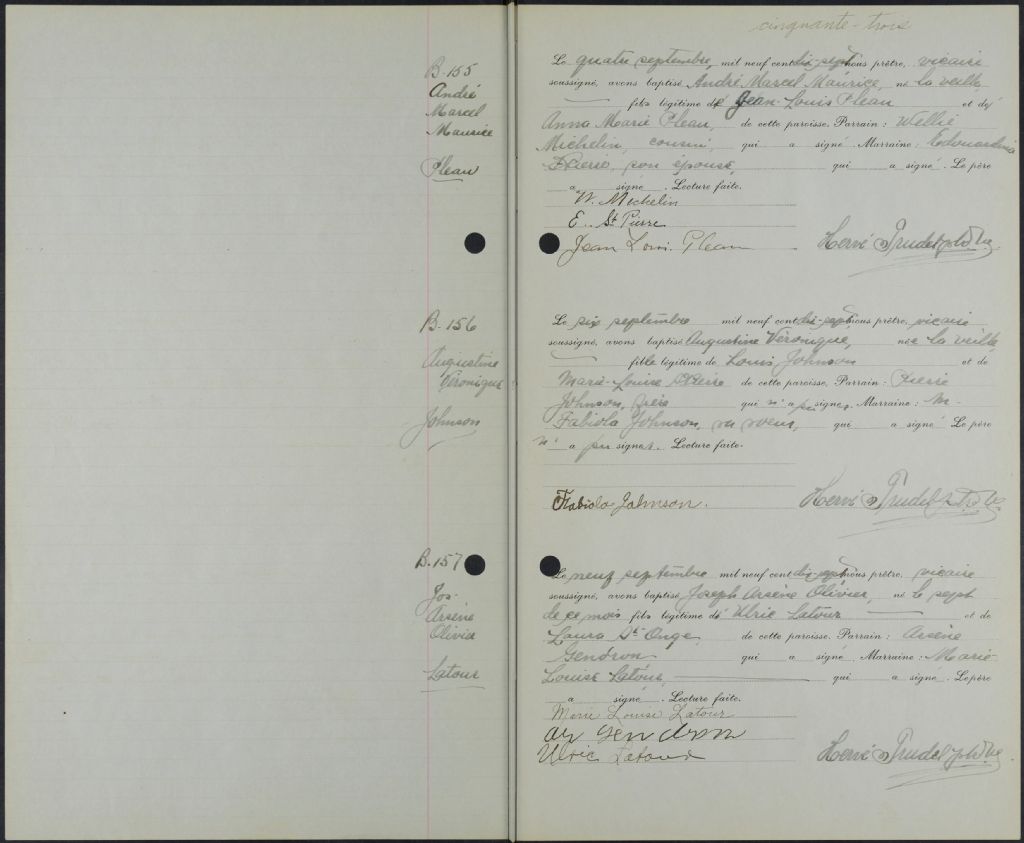 cinquante-trois
B-155
André
Marcel
Maurice
Plean
Le quatre septembre, mil neuf cent dix-sept nous prêtre, vicaire
soussigné, avons baptisé André Marcel Maurice, né la veille
fils légitime de Jean-Louis Plean et de
Anna Marie Plean, de cette paroisse. Parrain: Wellié
Michelin, cousin, qui a signé. Marraine: Edouardina
St Pierre, son épouse, qui a signé. Le père
a signé. Lecture faite.
W. Michelin
E. St Pierre
Jean Louis Plean
Hervé Trudel ptre Vic.
B-156
Augustine
Véronique
Johnson
Le six septembre mil neuf cent dix-sept nous prêtre, vicaire
soussigné, avons baptisé Augustine Véronique, née la veille,
fille légitime de Louis Johnson et de
Marie-Louise de cette paroisse. Parrain: Pierre
Johnson, frère qui n'a pu signer. Marraine: M-
Fabiola Johnson, sa soeur, qui a signé Le père
n' a pu signer. Lecture faite.
Fabiola Johnson.
Hervé Trudel ptre Vic.
B-157
Jos-
Arsène
Olivier
Latour
Le neuf septembre mil neuf cent dix-sept nous prêtre, vicaire
soussigné, avons baptisé Joseph Arsène Olivier, né le sept
de ce mois fils légitime de Ulric Latour et de
Laura St-Onge, de cette paroisse. Parrain: Arsène
Gendron qui a signé. Marraine: Marie-
Louise Latour, qui a signé. Le père
a signé. Lecture faite.
Marie Louise Latour
Gendron
Ulric Latour
Hervé Trudel ptre Vic.